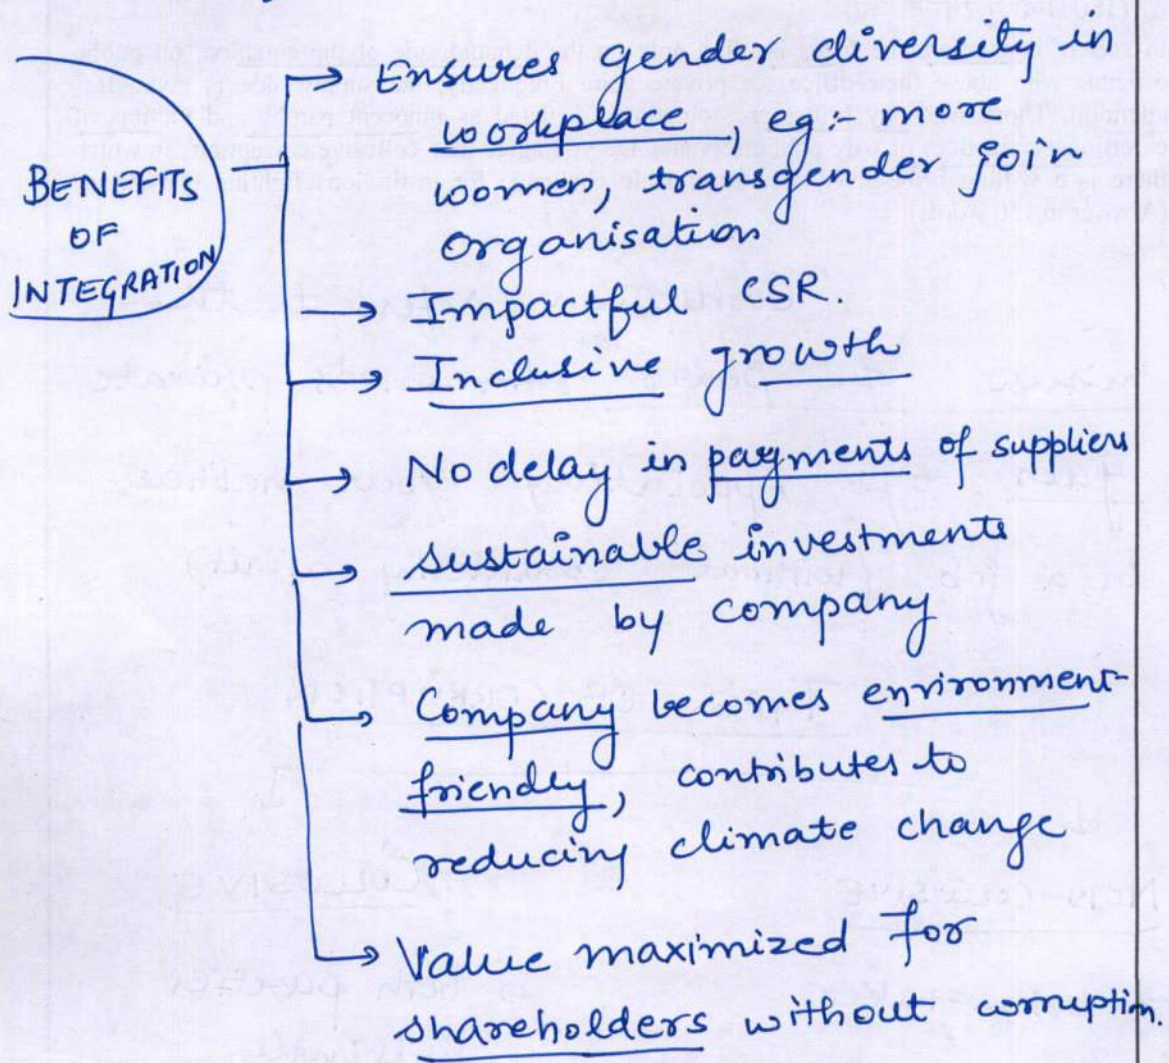 BENEFITS
OF
INTEGRATION
→ Ensures gender diversity in
workplace, eg:- more
women, transgender join
organisation
→ Impactful CSR.
→ Inclusive growth
→ No delay in payments of suppliers
→ sustainable investments
made by company
→ Company becomes environment-
friendly, contributes to
reducing climate change
→ Value maximized for
shareholders without corruption.